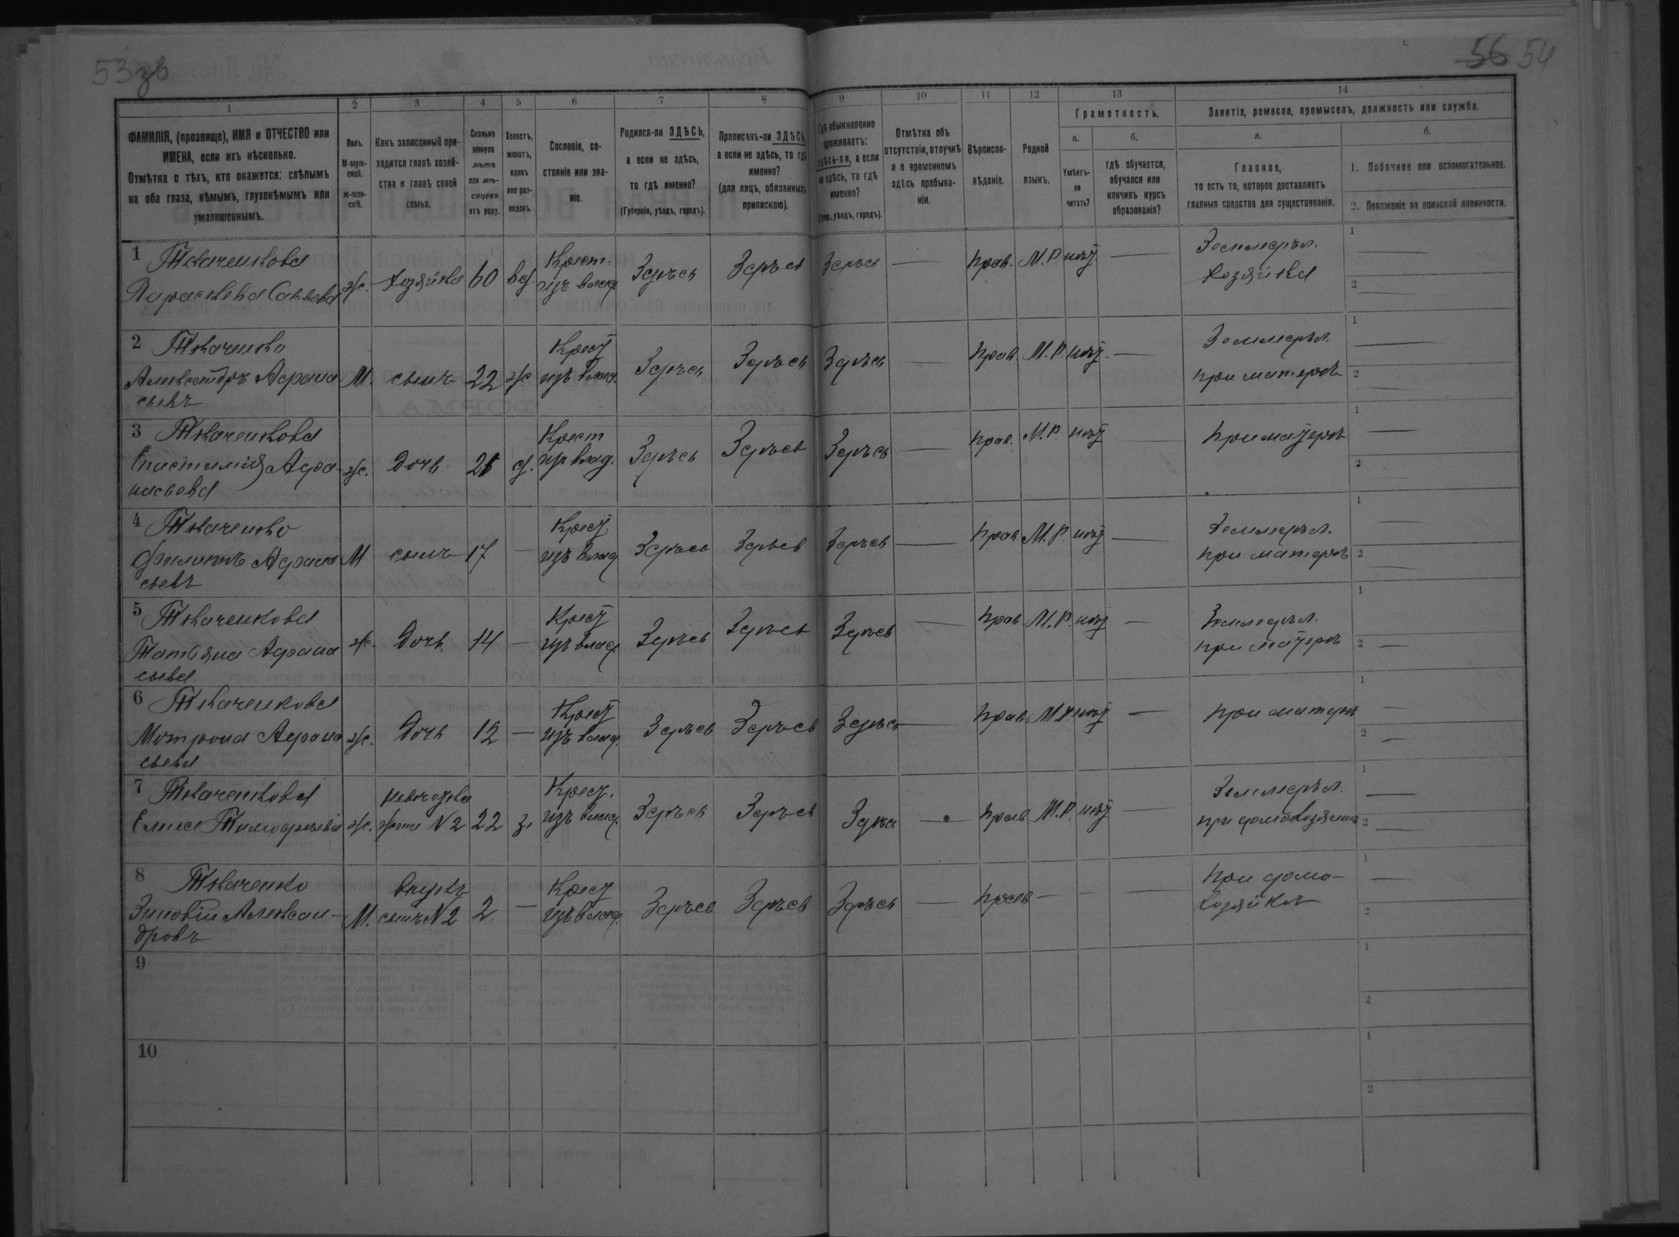 53зв
56 54
1 2 3 4 5 6 7 8 9 10 11 12 13 14
ФАМИЛІЯ, (прозвище), ИМЯ и ОТЧЕСТВО или ИМЕНА, если ихъ нѣсколько.
Отмѣтка о тѣхъ, кто окажется: слѣпымъ на оба глаза, нѣмымъ, глухонѣмымъ или умалишеннымъ.
Полъ.
М-мужской.
Ж-женскій.
Какъ записанный приходится главѣ хозяйства и главѣ своей семьи.
Сколько минуло лѣтъ или мѣсяцевъ отъ роду.
Холостъ, женатъ, вдовъ или разведенъ.
Сословіе, состояніе или званіе.
Родился-ли ЗДѢСЬ, а если не здѣсь, то гдѣ именно?
(Губернія, уѣздъ, городъ).
Приписанъ-ли ЗДѢСЬ, а если не здѣсь, то гдѣ именно?
(для лицъ, обязанныхъ припискою).
Гдѣ обыкновенно проживаетъ: здѣсь-ли, а если не здѣсь, то гдѣ именно?
(Губ., уѣздъ, городъ).
Отмѣтка объ отсутствіи, отлучкѣ и о временномъ здѣсь пребываніи.
Вѣроисповѣданіе.
Родной языкъ.
Грамотность.
а. Умѣетъ-ли читать?
б. гдѣ обучается, обучался или кончилъ курсъ образованія?
Занятія, ремесло, промыселъ, должность или служба.
а. Главное,
то есть то, которое доставляетъ главныя средства для существованія.
б.
1. Побочное или вспомогательное.
2. Положеніе по воинской повинности.
1 Ткаченкова Параскева Саввова ж. Хозяйка 60 вд. Крест. изъ владр. Здѣсь Здѣсь Здѣсь — Прав. М.Р. нѣт — Земледѣл. Хозяйка 1 — 2 —
2 Ткаченко Александръ Афанасьевъ М. сынъ 22 ж Крест изъ влад. Здѣсь Здѣсь Здѣсь — Прав. М.Р. нѣт — Земледѣл. при матери 1 — 2 —
3 Ткаченкова Епистимія Афанасьева ж. Дочь 21 д. Крест изъ влад. Здѣсь Здѣсь Здѣсь — Прав. М.Р. нѣт — При матери 1 — 2 —
4 Ткаченко Филиппъ Афанасьевъ М сынъ 17 — Крест. изъ влад Здѣсь Здѣсь Здѣсь — Прав М.Р. нѣт — Земледѣл. при матери 1 — 2 —
5 Ткаченкова Татьяна Афанасьева ж. Дочь 14 — Крест изъ влад Здѣсь Здѣсь Здѣсь — Прав М.Р нѣт — Земледѣл. при матери 1 2 —
6 Ткаченкова Мотрона Афанасьева ж. Дочь 12 — Крест изъ влад. Здѣсь Здѣсь Здѣсь — Прав М.Р нѣт — При матери 1 — 2 —
7 Ткаченкова Елена Тимофѣева ж. невѣстка жена N2 22 з. Крест. изъ влад. Здѣсь Здѣсь Здѣсь — Прав М.Р. нѣт — Земледѣл. при домохозяинѣ 1 — 2 —
8 Ткаченко Зиновій Александровъ М. внукъ сынъ N2 2 — Крест изъ влад. Здѣсь Здѣсь Здѣсь — Прав — — — При домохозяйкѣ 1 — 2
9 1 2
10 1 2